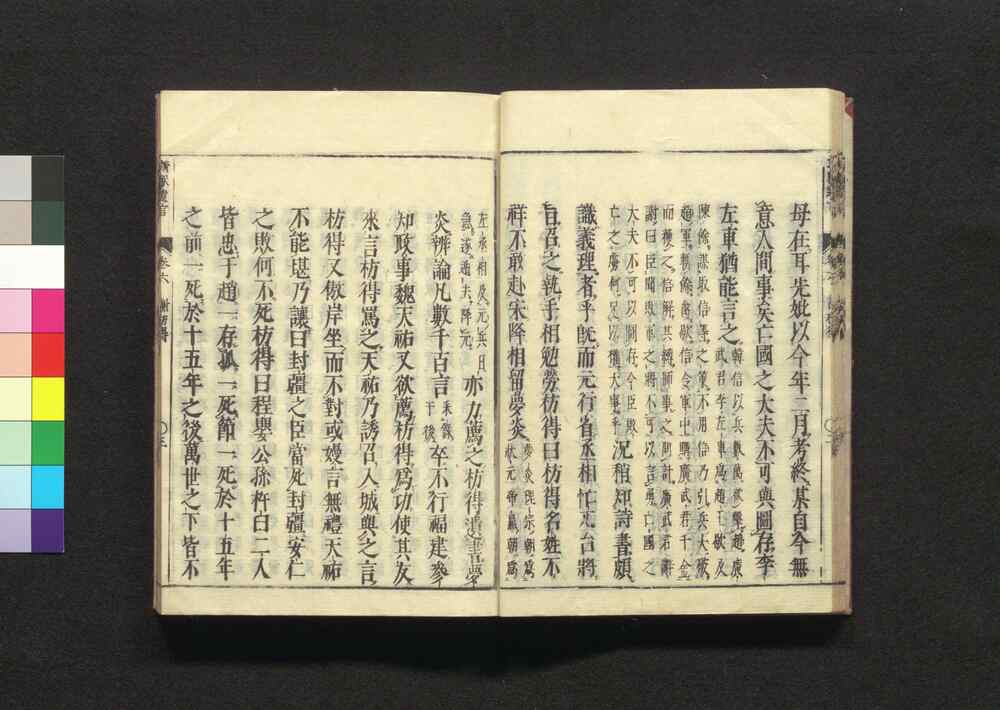 母在耳先妣以今年二月考終某自今無
意人間事矣亡國之大夫不可與圖存李
左車猶能言之
韓信以兵數萬欲擊趙廣
武君李左車爲趙王歇及
陳餘謀取信等之策不用信乃引兵大破
趙軍斬餘禽歇信令軍中購廣武君千金
而獲之信解其縛師事之問計廣武君辭
謝曰臣聞敗軍之將不可以言勇亡國之
大夫不可以圖存今臣敗
亡之虜何足以權大事乎
況稍知詩書頗
識義理者乎既而元行省丞相忙兀台將
旨召之執手相勉勞枋得曰枋得名姓不
祥不敢赴宋降相留夢炎
夢炎理宗朝爲
狀元帝㬎朝爲
左丞相及元兵日
急遂遁去降元
亦力薦之枋得遺書夢
炎辨論凡數千百言
采錄
于後
卒不行福建參
知政事魏天祐又欲薦枋得爲功使其友
來言枋得罵之天祐乃誘召入城與之言
枋得又傲岸坐而不對或嫚言無禮天祐
不能堪乃讓曰封疆之臣當死封疆安仁
之敗何不死枋得曰程嬰公孫杵臼二人
皆忠于趙一存孤一死節一死於十五年
之前一死於十五年之後萬世之下皆不
卷六
謝枋得